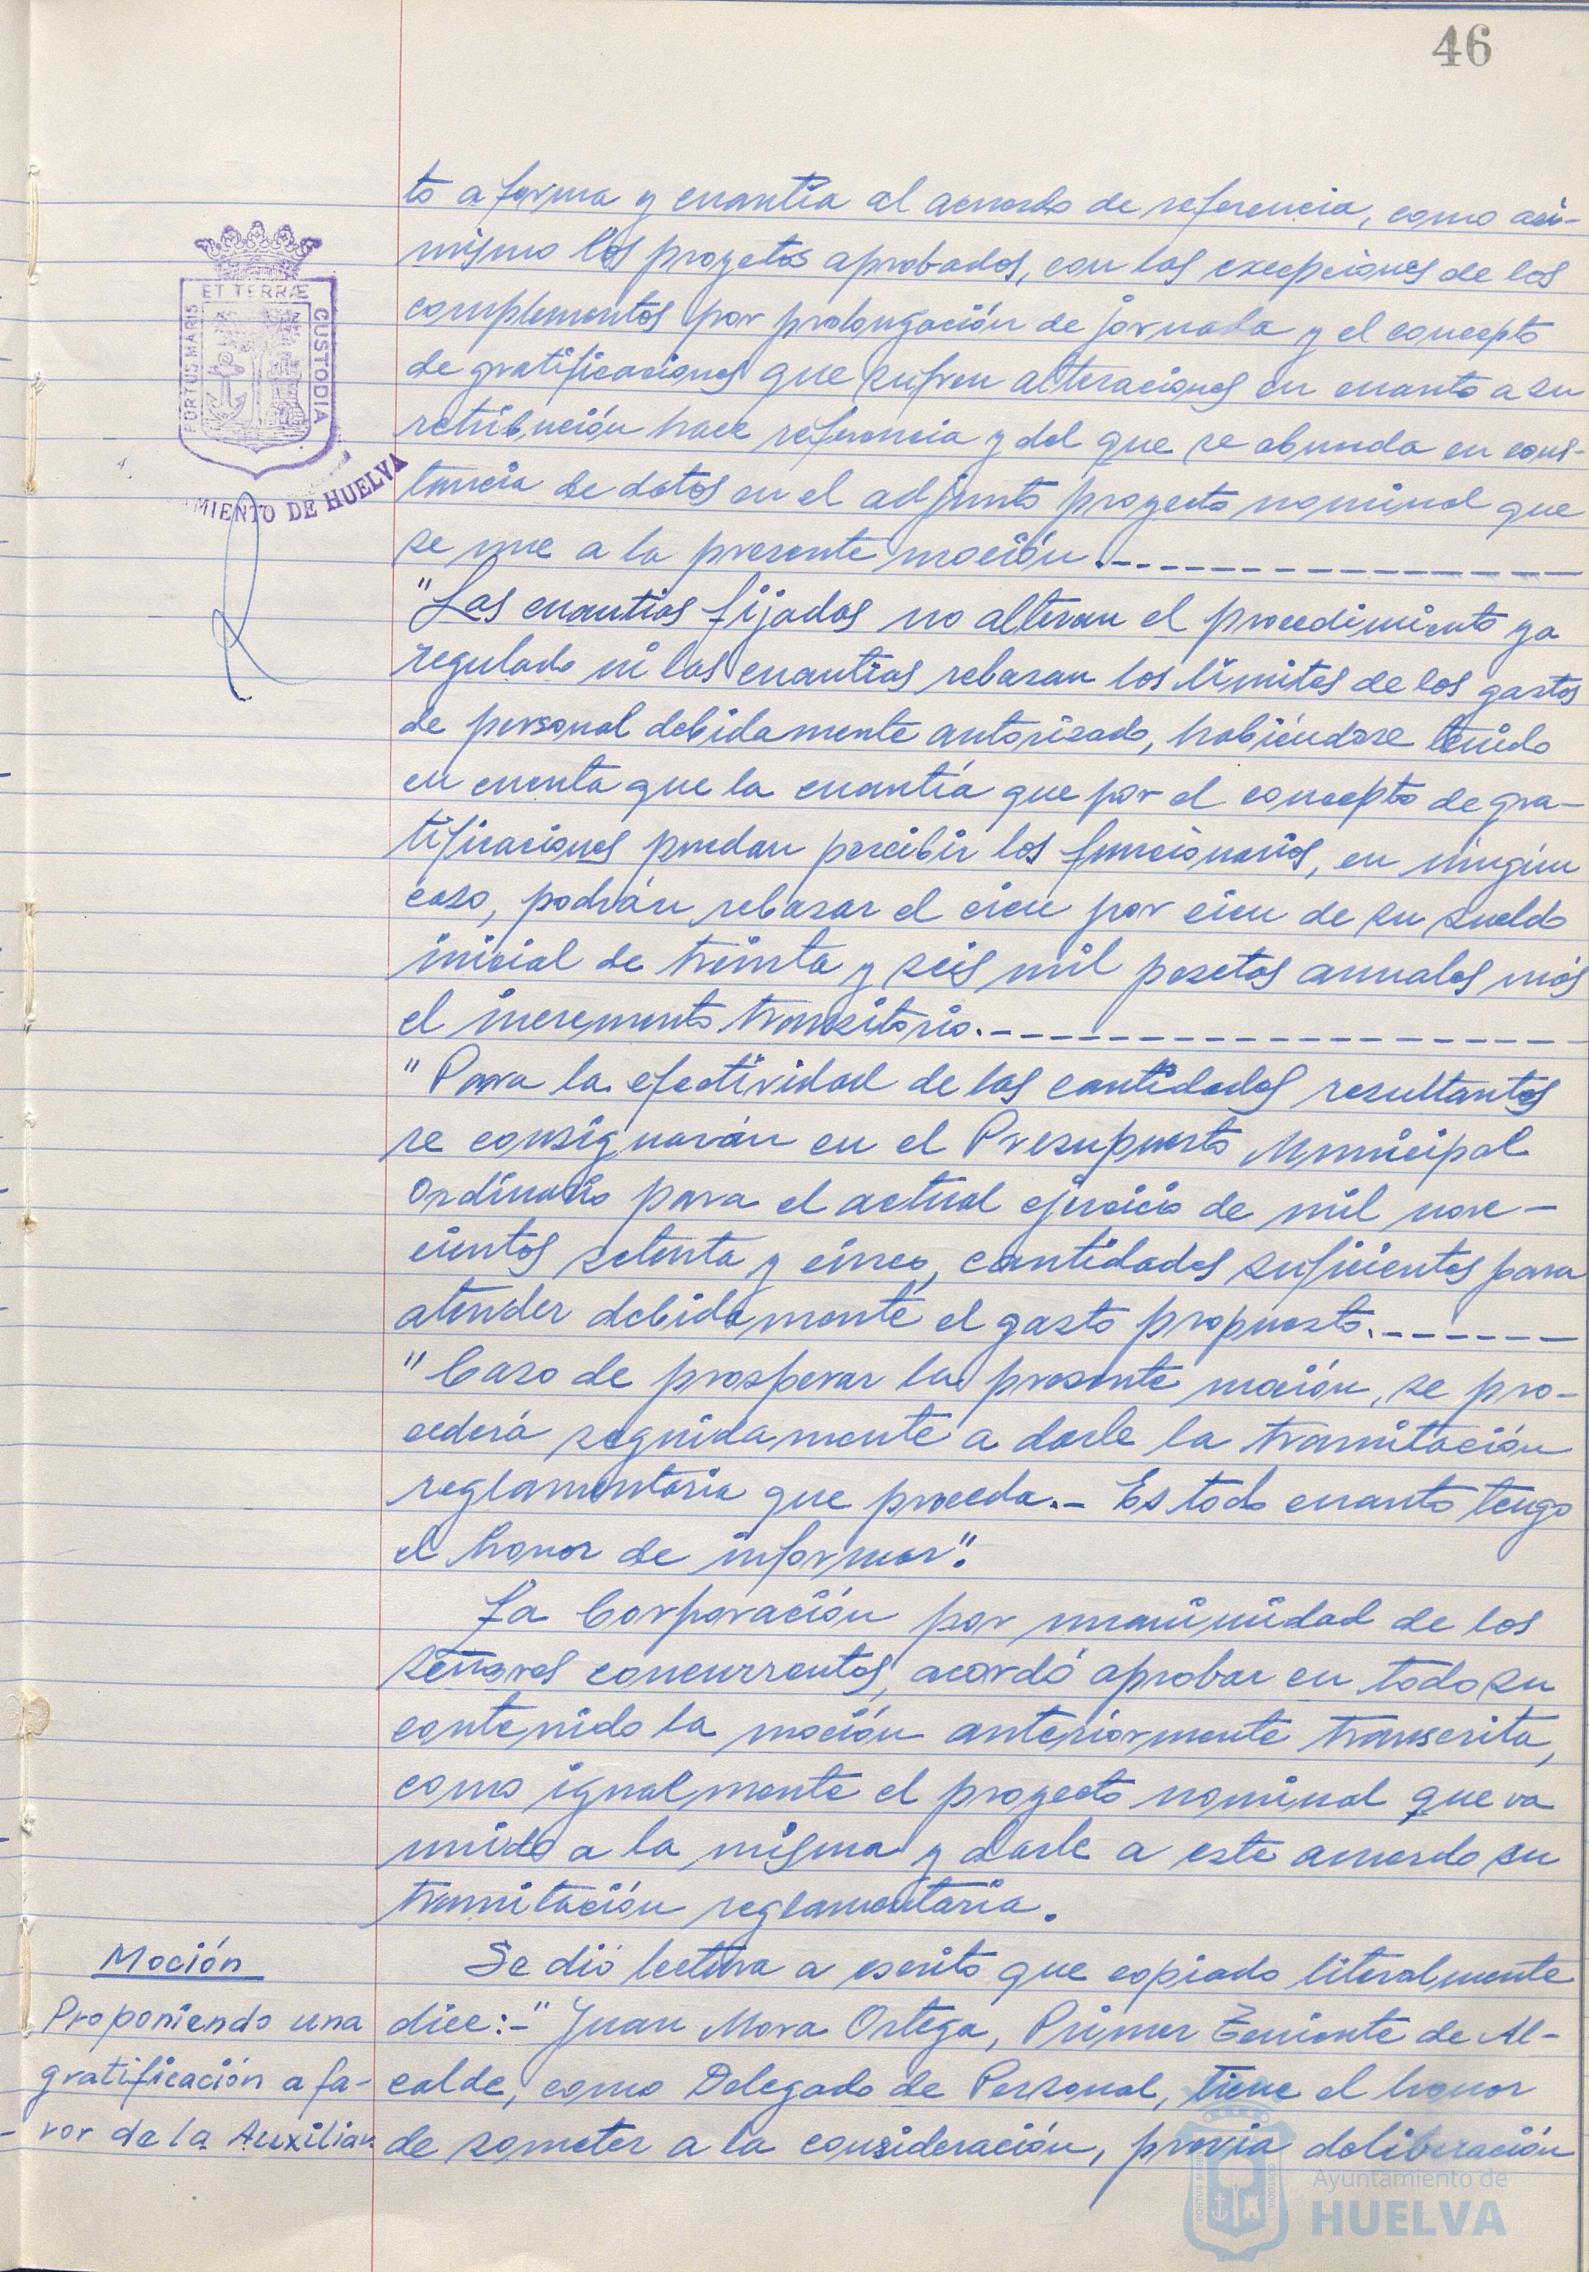 46
to a forma y cuantía al acuerdo de referencia, como asi-
mismo los proyetos aprobados, con las excepciones de los
complementos por prolongación de jornada y el concepto
de gratificaciones que sufren alteraciones en cuanto a su
retribución hace referencia y del que se abunda en cons-
tancia de datos en el adjunto proyecto nominal que
se une a la presente moción.-
"Las cuantías fijadas no alteran el procedimiento ya
regulado ni las cuantías rebasan los límites de los gastos
de personal debidamente autorizado, habiéndose tenido
en cuenta que la cuantía que por el concepto de gra-
tificaciones puedan percibir los funcionarios, en ningún
caso, podrán rebasar el cien por cien de su sueldo
inicial de treinta y seis mil pesetas anuales más
el incremento transitorio.-
"Para la efectividad de las cantidades resultantes
se consignarán en el Presupuesto Municipal
Ordinario para el actual ejercicio de mil nove-
cientos setenta y cinco, cantidades suficientes para
atender debidamente el gasto propuesto.-
"Caso de prosperar la presente moción, se pro-
cederá seguidamente a darle la tramitación
reglamentaria que proceda.- Es todo cuanto tengo
el honor de informar".
La Corporación por unanimidad de los
señores concurrentes, acordó aprobar en todo su
contenido la moción anteriormente transcrita,
como igualmente el proyecto nominal que va
unido a la misma y darle a este acuerdo su
tramitación reglamentaria.
Se dió lectura a escrito que copiado literalmente
dice:-"Juan Mora Ortega, Primer Teniente de Al-
calde, como Delegado de Personal, tiene el honor
de someter a la consideración, previa deliberación
Moción
Proponiendo una
gratificación a fa-
vor de la Auxiliar
PORTUS MARIS
ET TERRÆ
CUSTODIA
MIENTO DE HUELVA
Ayuntamiento de
HUELVA